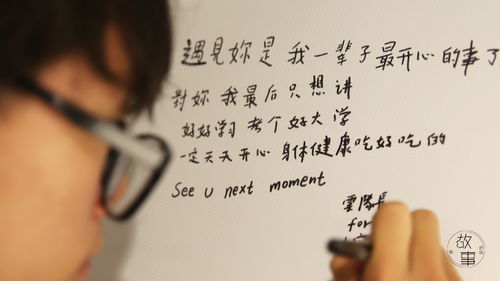 遇見妳是 我一辈子最开心的事了
對妳 我最后只想讲
好好学习 考个好大学
一定天天开心 身体健康吃好吃的
See u next moment
for
故事